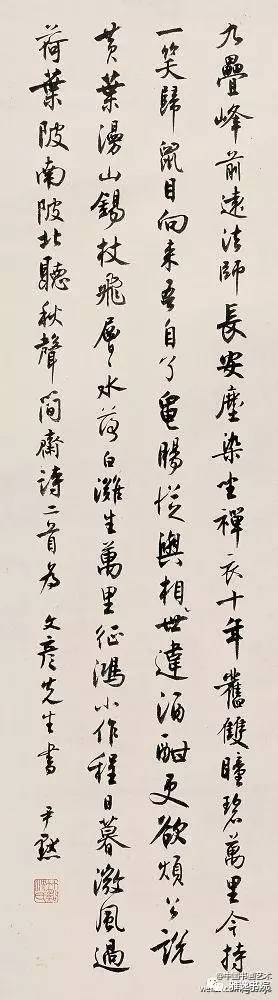 九疊峰前遠法師長安塵染坐禪衣十年舊雙瞳碧萬里今持
一笑歸鼠目向来吾自了龜腸從與相世違酒酣更欲煩公説
黄葉漫山錫杖飛層〻水落白灘生萬里征鴻小作程日暮微風過
荷葉陂南陂北聽秋聲簡齋詩二首為 文彦先生書 尹默
@中国书画艺术